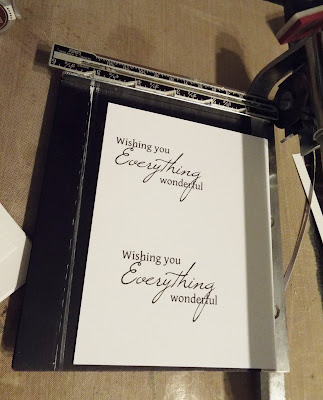 Wishing you
Everything
wonderful
Wishing you
Everything
wonderful